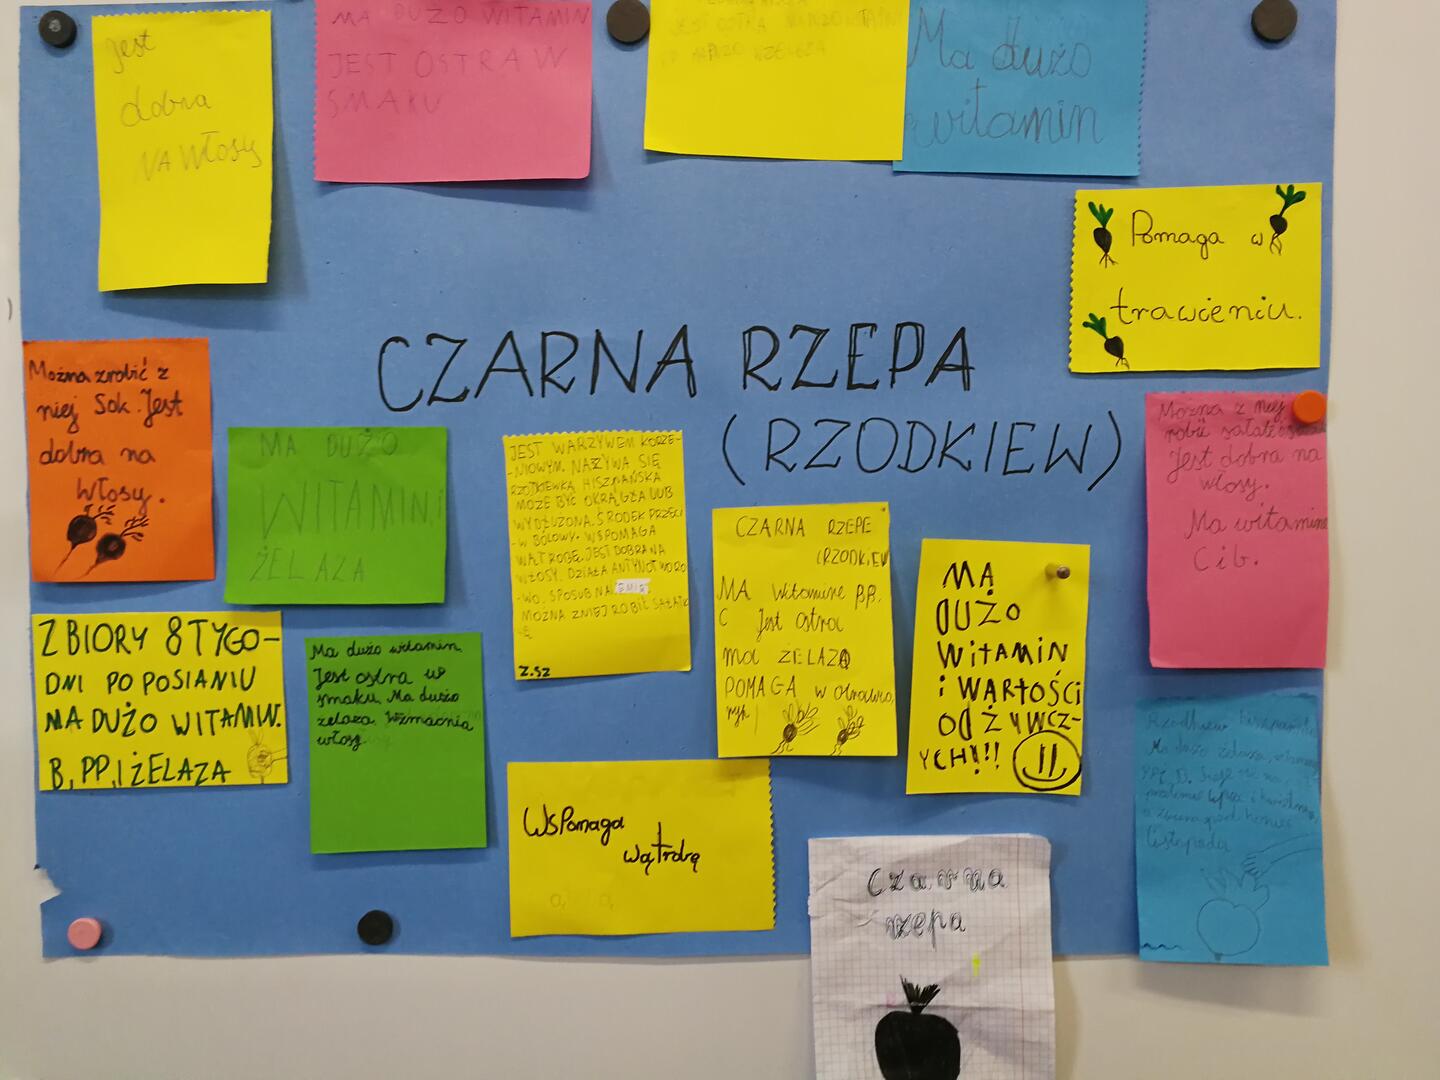 Jest
dobra
NA Włosy
MA DUŻO WITAMIN
JEST OSTRA W
SMAKU
JEST OSTRA
ŻELAZA
Ma dużo
witamin
Pomaga w
trawieniu.
CZARNA RZEPA
(RZODKIEW)
Można zrobić z
niej Sok. Jest
dobra na
włosy.
MA DUŻO
WITAMIN i
ŻELAZA
JEST WARZYWEM KORZE-
-NIOWYM. NAZYWA SIĘ
RZODKIEWKĄ HISZPAŃSKA
MOŻE BYĆ OKRĄGŁA LUB
WYDŁUŻONA. ŚRODEK PRZECI
-W BÓLOWY. WSPOMAGA
WĄTROBĘ. JEST DOBRA NA
WŁOSY. DZIAŁA ANTYNOTWORO
-WO. SPOSUB NA
MOŻNA ZNIEJ ROBIĆ SAŁATK
Ę
Z.SZ
CZARNA RZEPE
(RZODKIEW
MA witamine BP.
C Jest Ostra
ma ŻELAZO
POMAGA w
MA
DUŻO
WiTAMiN
i WARtOŚCi
ODŻYWCZ-
YCH!!!
Można z niej
robić sałatę
Jest dobra na
włosy.
Ma witamine
C i b.
ZBIORY 8 TYGO-
DNI PO POSIANIU
MA DUŻO WITAMIN.
B, PP, I ŻELAZA
Ma dużo witamin.
Jest ostra w
smaku. Ma dużo
żelaza. Wzmacnia
włosy
Wspomaga
wątrobę
Czarna
rzepa
Rzodkiew hiszpańska
Ma dużo żelaza,
listopada